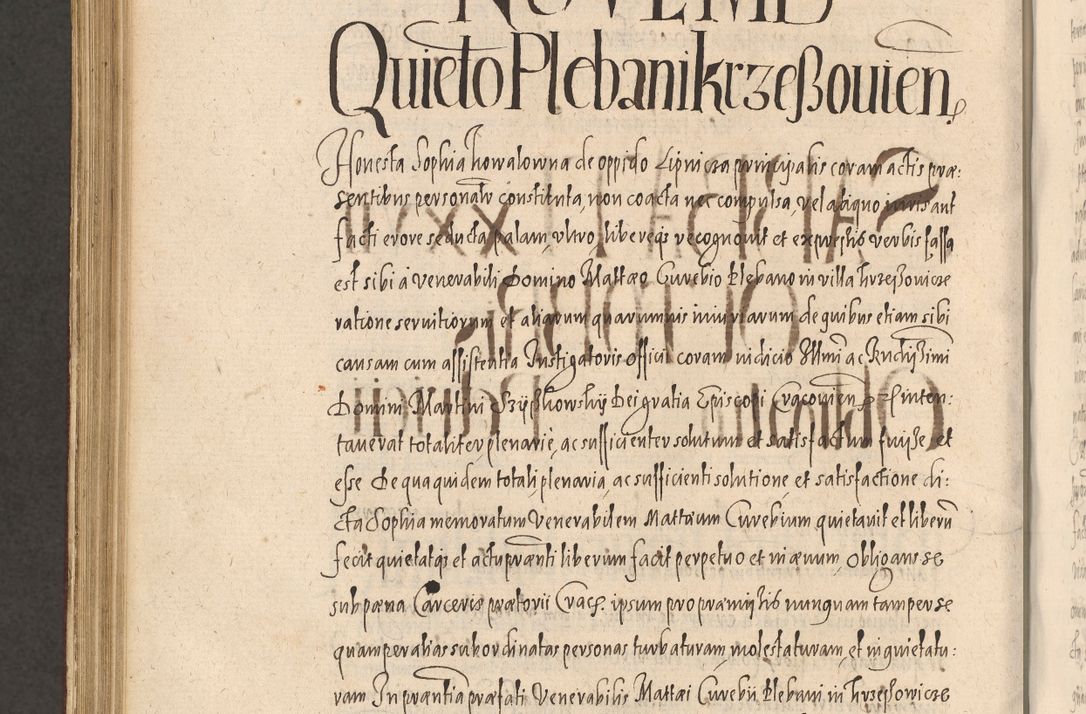 NOVEMB
Quieto Plebani krzeßouien
Honesta Sophia kowalowna de oppido Lipnicza principalis coram actis præ:
sentibus personalr constituta, non coacta nec compulsa, vel aliquo iuris aut
facti errore seducta, palam, vltro, libereqs recognouit et expressis verbis fassa
est sibi à venerabili Domino Mattæo Curebio Plebano in villa krzeßowicze
ratione seruitiorum et aliarum quarumuis iniuriarum de quibus etiam sibi
causam cum assistentia Instigatoris officii coram iudicio Illmi ac Rndissimi
Domini Martini Szÿßkowskÿ Dei gratia Episcopi Cracouien inten:
tauerat totaliter, plenariè, ac sufficienter solutum et satisfactum fuiße, et
esse De qua quidem totali, plenaria, ac sufficienti solutione et satisfactione di:
cta Sophia memoratum Venerabilem Mattæum Curebium quietauit et liberū
fecit quietatqs et actu præsnti liberum facit perpetuo et in æuum, obligans se
sub pæna Carceris prætorii Crac ipsum pro præmissis nunquam tam per se
quam per alias subordinatas personas turbaturam, molestaturam, et inquietatu:
ram In præntia præfati Venerabilis Mattæi Curebii Plebani in krzeßowicze